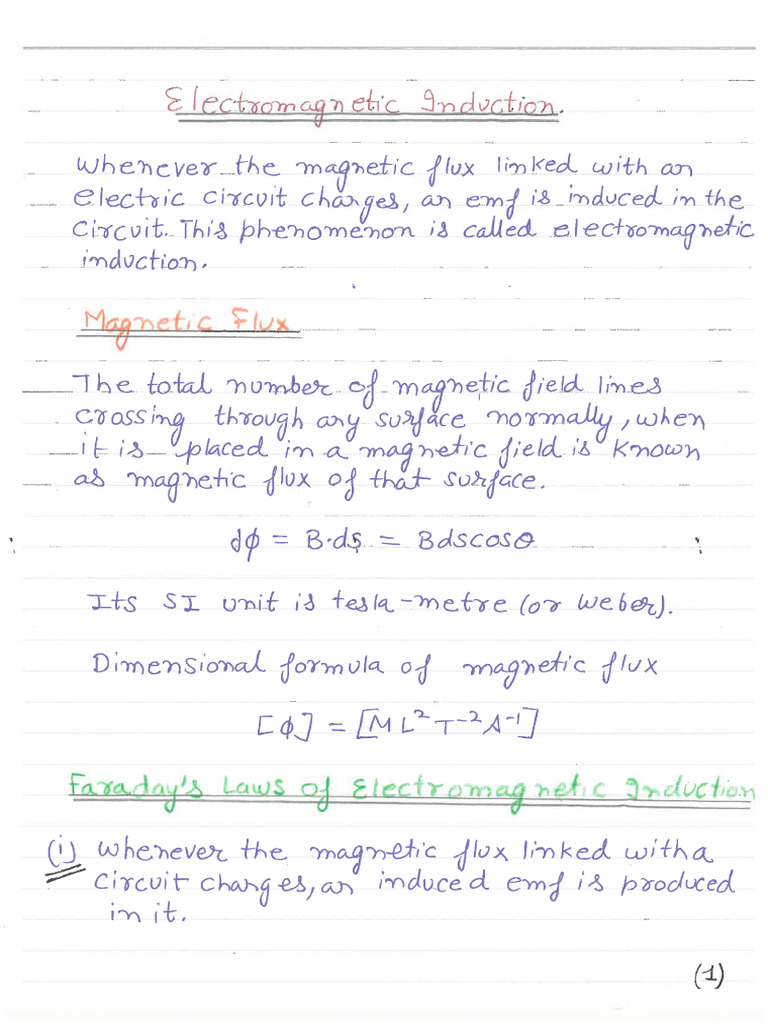 Electromagnetic Induction.
Whenever the magnetic flux linked with an
electric circuit charges, an emf is induced in the
circuit. This phenomenon is called electromagnetic
induction.
Magnetic Flux
The total number of magnetic field lines
crossing through any surface normally, when
it is placed in a magnetic field is known
as magnetic flux of that surface.
dϕ = B·ds = Bdscosθ
Its SI unit is tesla-metre (or weber).
Dimensional formula of magnetic flux
[ϕ] = [ML²T⁻²A⁻¹]
Faraday's Laws of Electromagnetic Induction
(i) Whenever the magnetic flux linked with a
circuit charges, an induced emf is produced
in it.
(1)